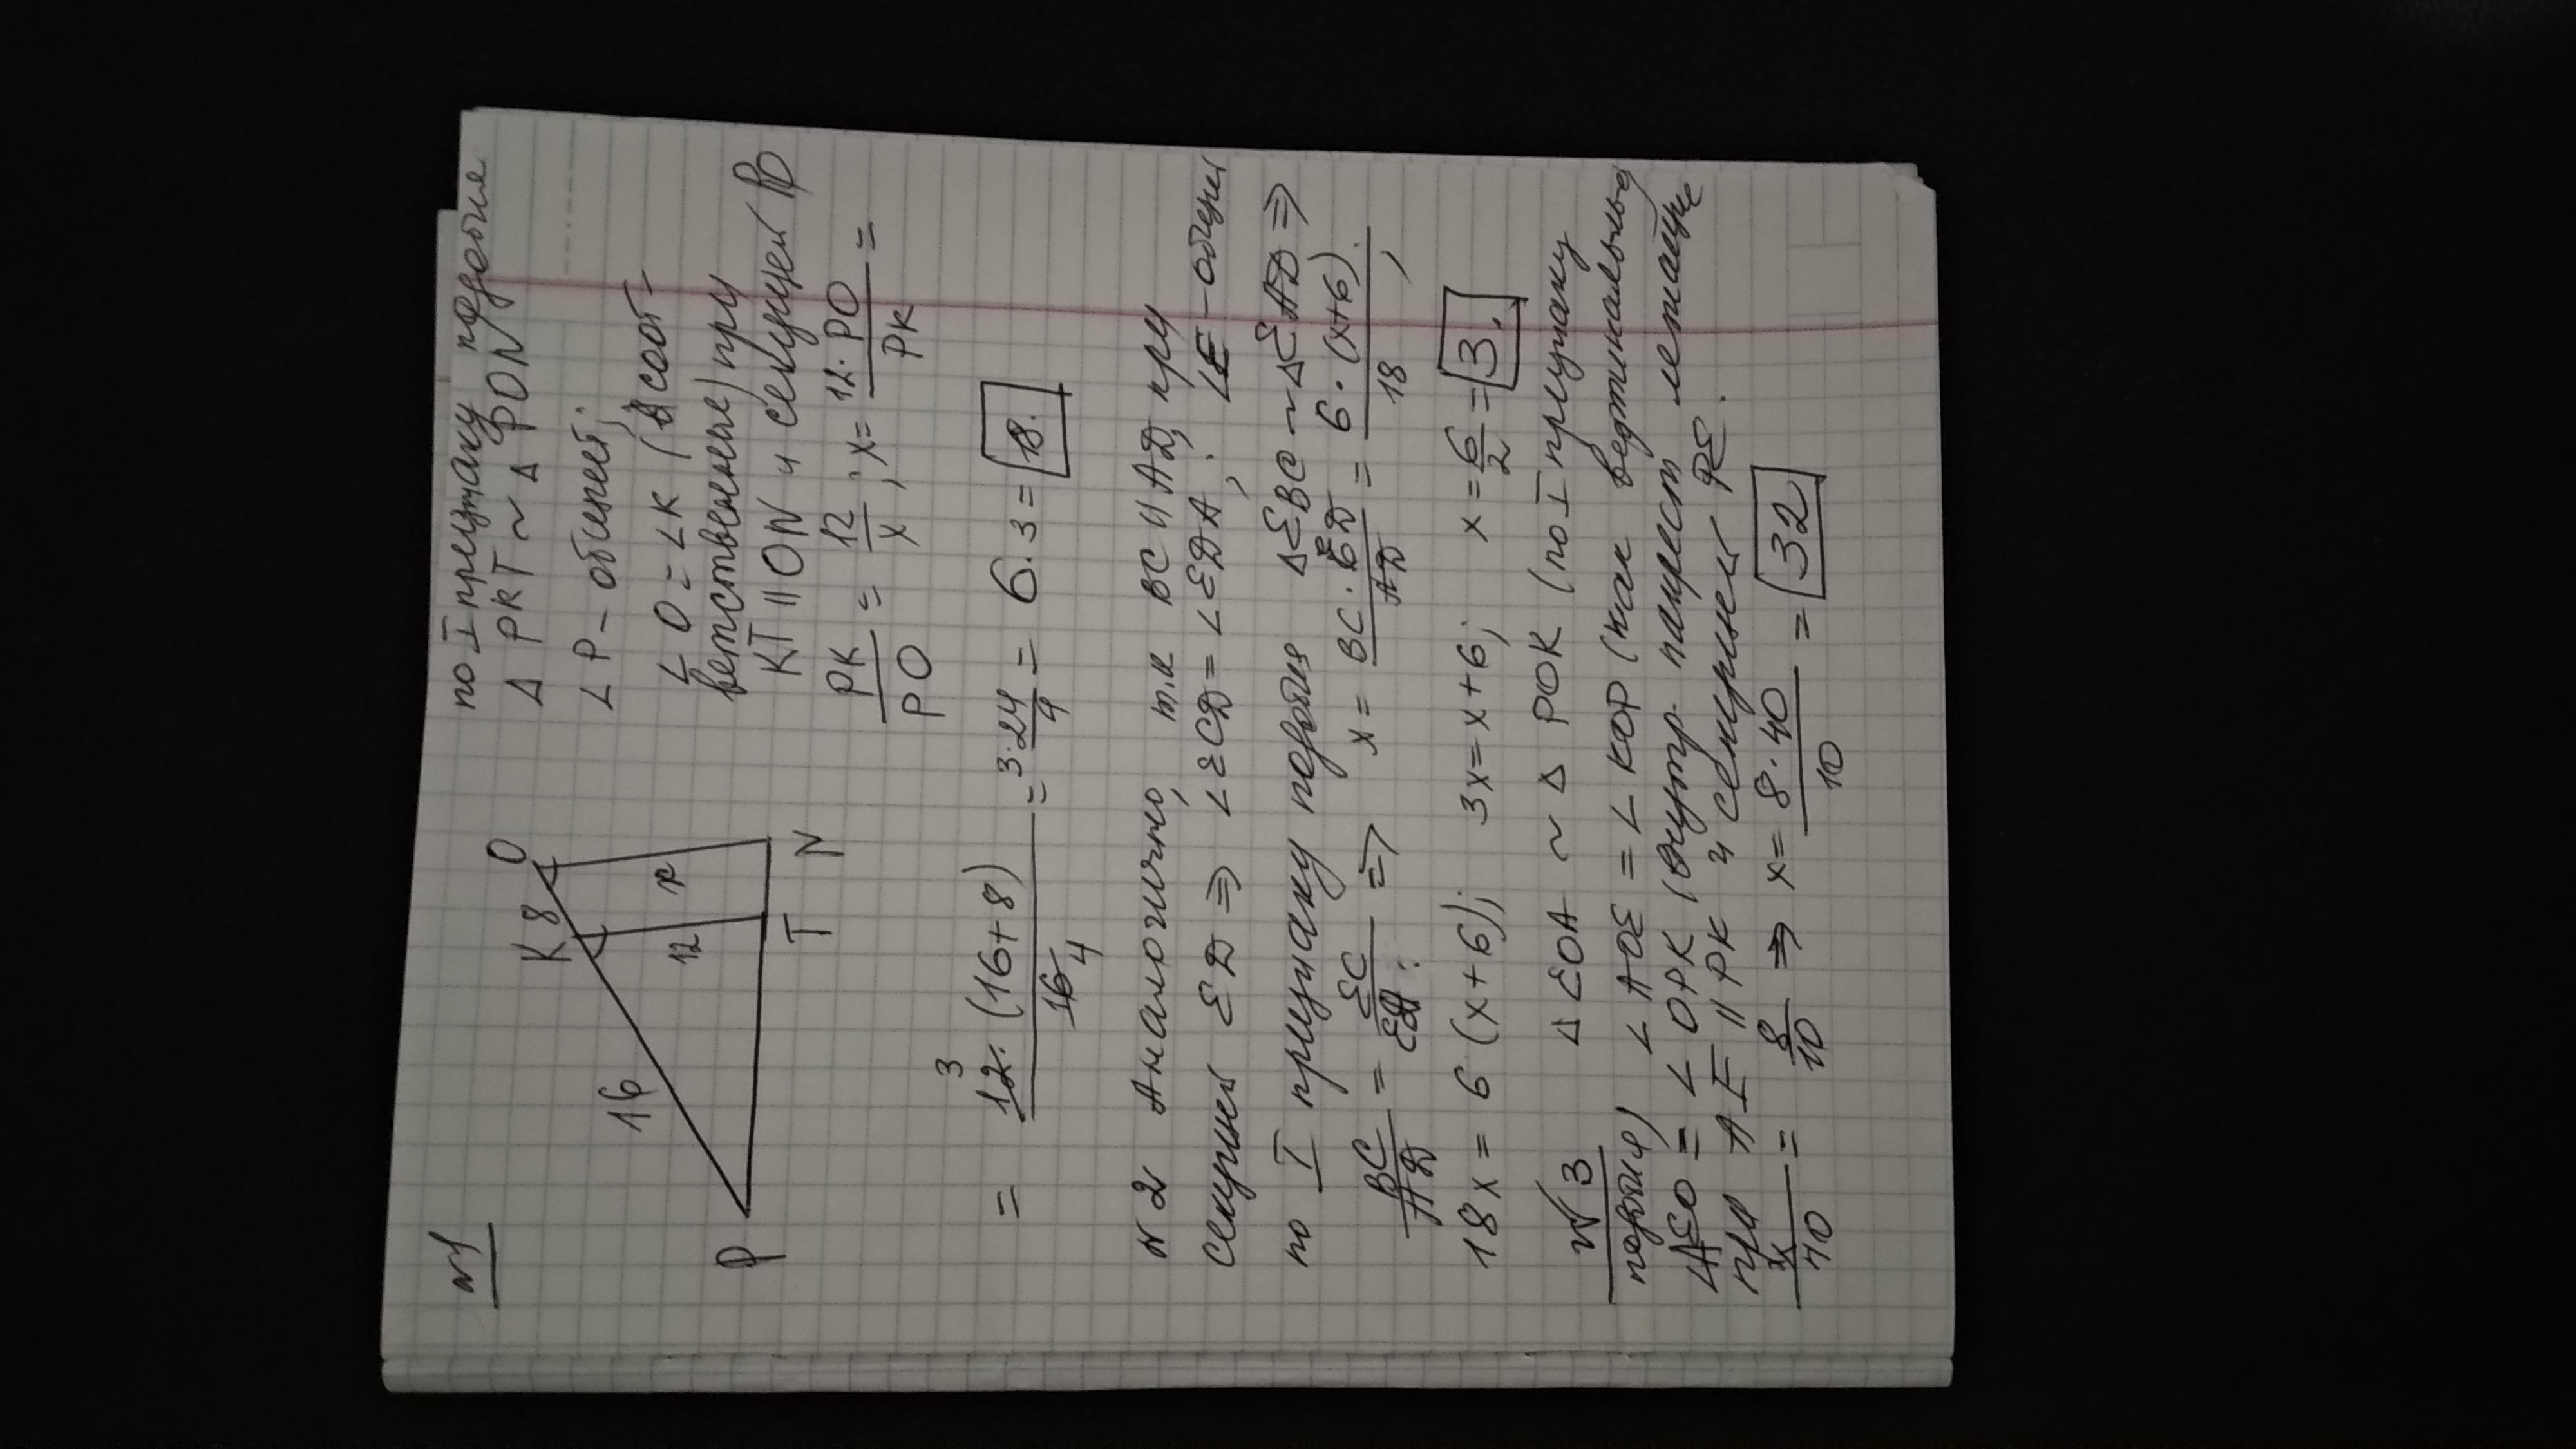 №1
по I признаку подобия
△ PKT ~ △ PON
∠ P - общий;
∠ O = ∠ K (соот-
ветственные) при
KT || ON и секущей PO
P 16 K 8 O
12 x
T N
PK/PO = 12/x ; x = 12·PO/PK =
= 12·(16+8)/16 = 3·24/4 = 6·3 = 18.
№2 Аналогично, т.к BC || AD, при
секущей ED ⇒ ∠ECD = ∠EDA ; ∠E - общий
по I признаку подобия △EBC ~ △EAD ⇒
BC/AD = EC/ED ⇒ x = BC·ED/AD = 6·(x+6)/18 ,
18x = 6(x+6); 3x = x+6; x = 6/2 = 3.
№3 △ EOA ~ △ POK (по I признаку
подобия) ∠ AOE = ∠ KOP (как вертикальные
∠AEO = ∠ OPK (внутр. накрест лежащие
при AE || PK и секущей PE.
x/40 = 8/10 ⇒ x = 8·40/10 = 32